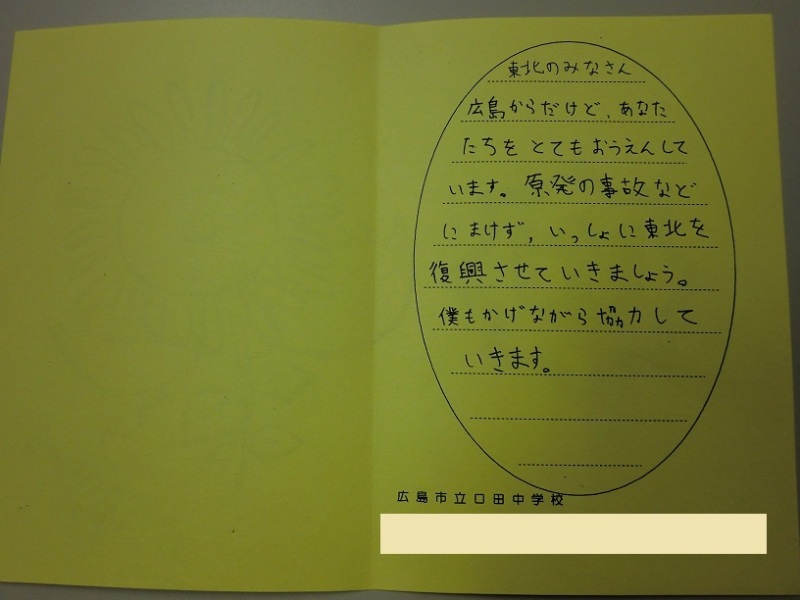 東北のみなさん
広島からだけど、あなた
たちをとてもおうえんして
います。原発の事故など
にまけず、いっしょに東北を
復興させていきましょう。
僕もかげながら協力して
いきます。
広島市立口田中学校